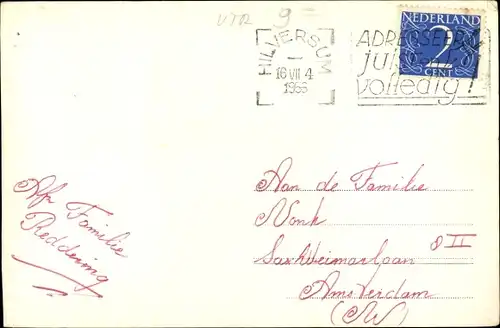 VTR 9 =
NEDERLAND
2
CENT
HILVERSUM
16 VII 4
1956
ADRESSEER
juist en
volledig!
Aan de Familie
Vonk
SaxWeimarlaan 8 II
Amsterdam
(W)
Afz Familie
Reddering